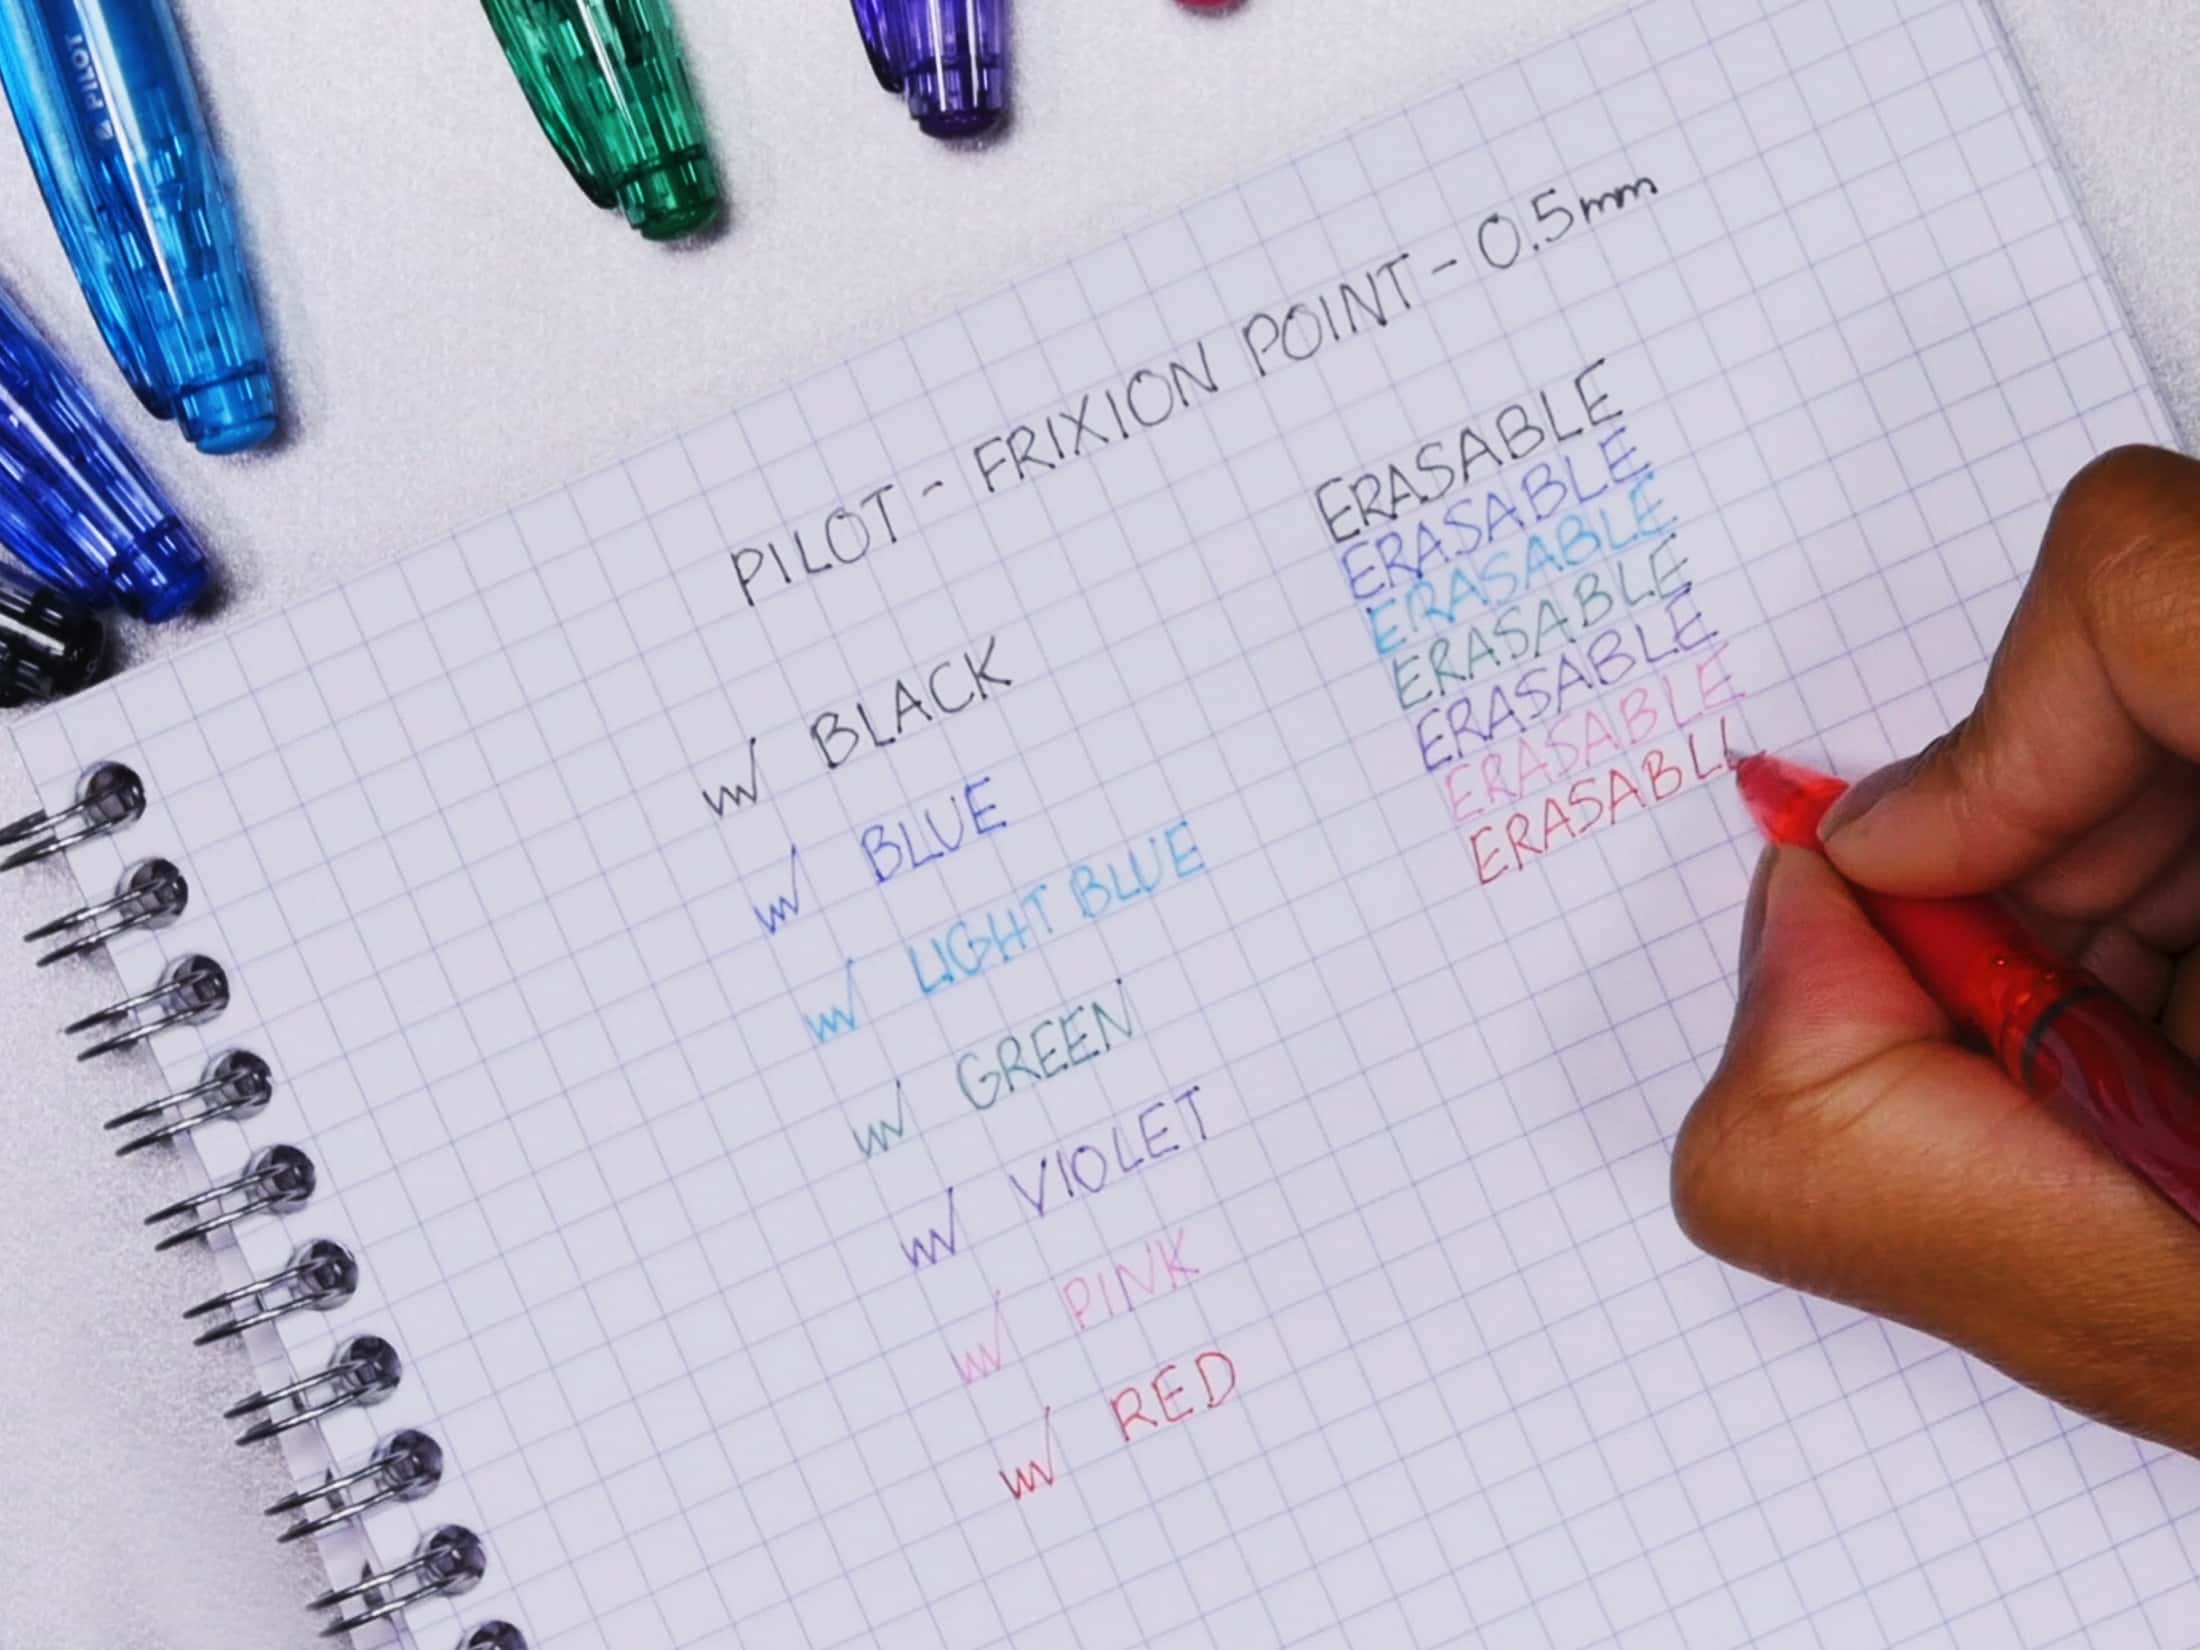 PILOT
PILOT - FRIXION POINT - 0.5mm
BLACK
BLUE
LIGHT BLUE
GREEN
VIOLET
PINK
RED
ERASABLE
ERASABLE
ERASABLE
ERASABLE
ERASABLE
ERASABLE
ERASABL